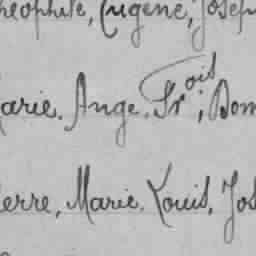 héophile, Eugène, Josep
arie. Ange. Frois; Dom
ierre, Marie. Louis, Jos